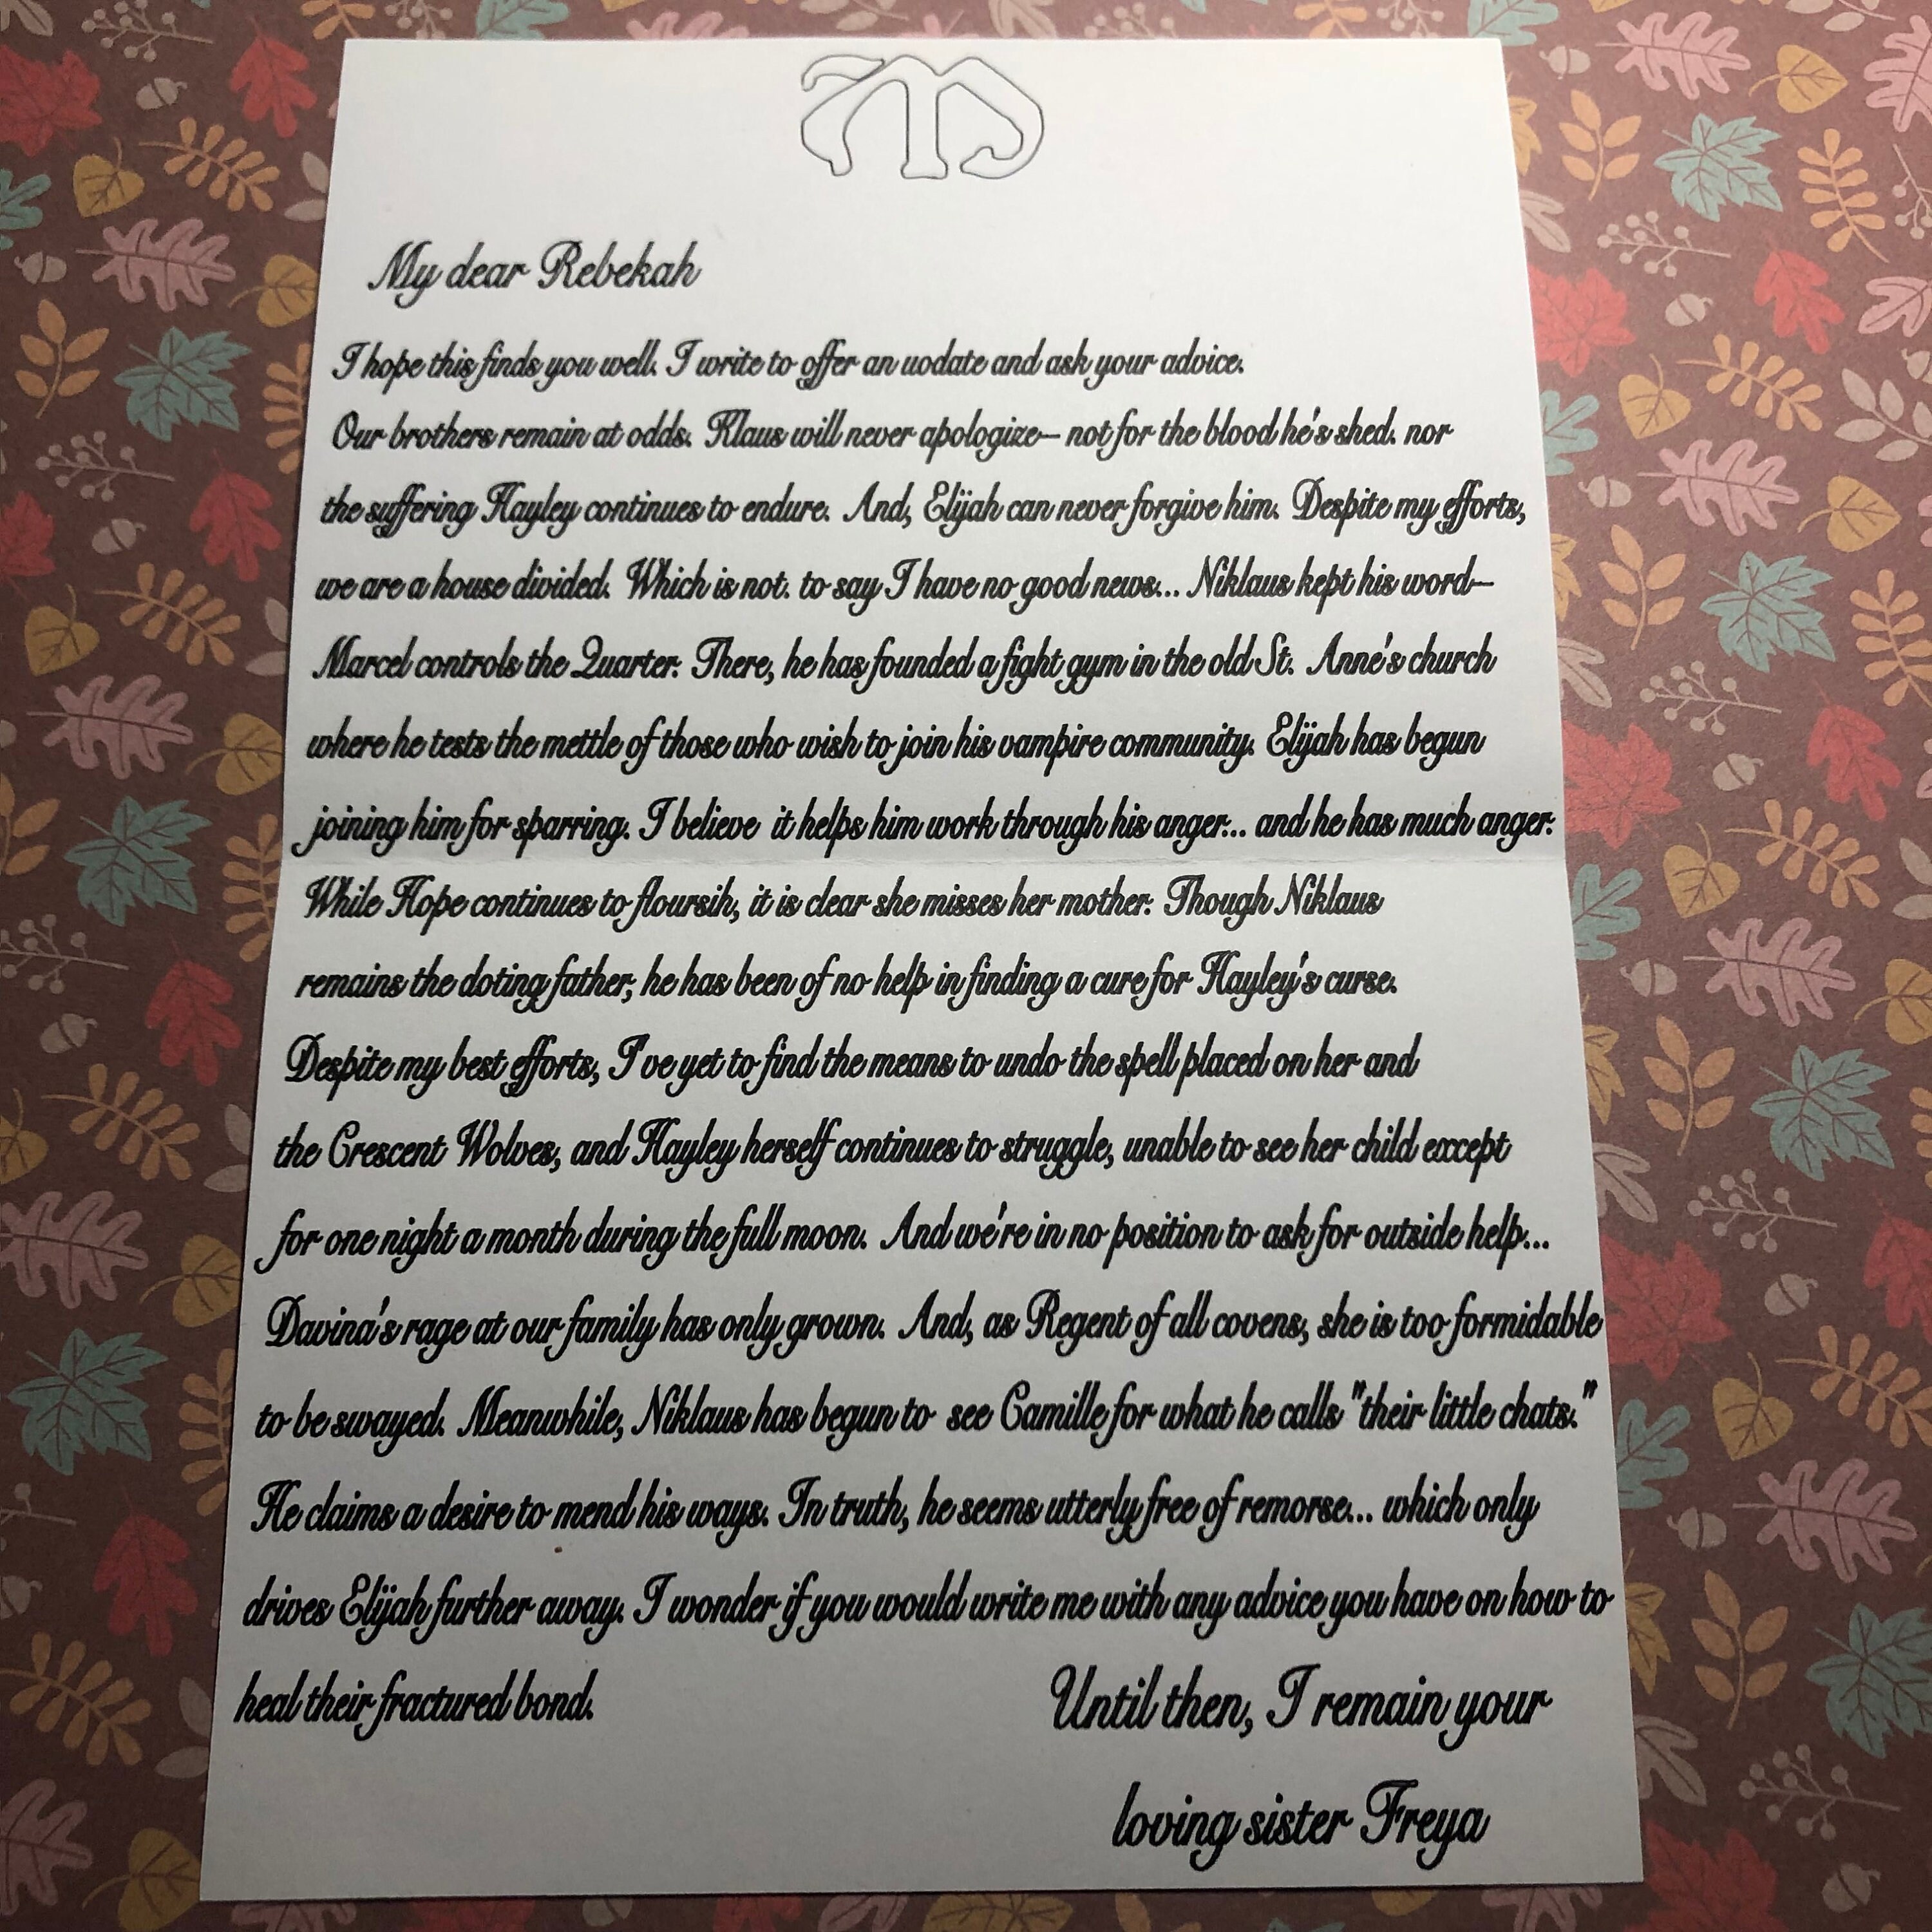 M
My dear Rebekah
I hope this finds you well. I write to offer an uodate and ask your advice.
Our brothers remain at odds. Klaus will never apologize– not for the blood he's shed. nor
the suffering Hayley continues to endure. And, Elijah can never forgive him. Despite my efforts,
we are a house divided. Which is not. to say I have no good news... Niklaus kept his word–
Marcel controls the Quarter. There, he has founded a fight gym in the old St. Anne's church
where he tests the mettle of those who wish to join his vampire community. Elijah has begun
joining him for sparring. I believe it helps him work through his anger... and he has much anger.
While Hope continues to floursih, it is clear she misses her mother. Though Niklaus
remains the doting father, he has been of no help in finding a cure for Hayley's curse.
Despite my best efforts, I've yet to find the means to undo the spell placed on her and
the Crescent Wolves, and Hayley herself continues to struggle, unable to see her child except
for one night a month during the full moon. And we're in no position to ask for outside help...
Davina's rage at our family has only grown. And, as Regent of all covens, she is too formidable
to be swayed. Meanwhile, Niklaus has begun to see Camille for what he calls "their little chats."
He claims a desire to mend his ways. In truth, he seems utterly free of remorse... which only
drives Elijah further away. I wonder if you would write me with any advice you have on how to
heal their fractured bond.
Until then, I remain your
loving sister Freya